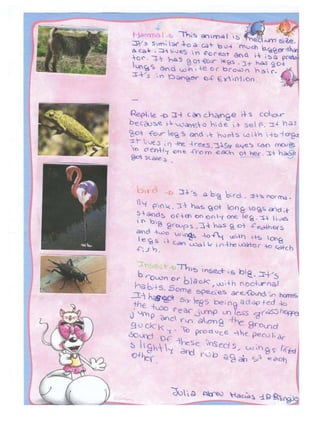 Mammal → This animal is medium size.
It's similar to a cat but much bigger than
a cat. It lives in forest and it is a preda
tor. It has got four legs. It has got
lungs and white or brown hair.
It's in Danger of Extintion.
Reptile → It can change its colour
because it want to hide it self. It has
got four legs and it hunts with its
It lives in the trees. Its eyes can move
in dently one from each other. It has
got scales.
bird → It's a big bird. It's norma-
lly pink. It has got long legs and it
stands often on only one leg. It live
in big groups. It has got feathers
and two wings to fly with its long
legs it can walk in the water to catch
fish.
Insect → This insect is big. It's
brown or black, with nocturnal
habits. Some species are found in homes
It has got six legs being adapted to
the two rear jump
jump and run along the ground
quickly. To produce the peculiar
sound of these insects, wings lifted
slightly and rub against each
other
Julia Abreu Macías